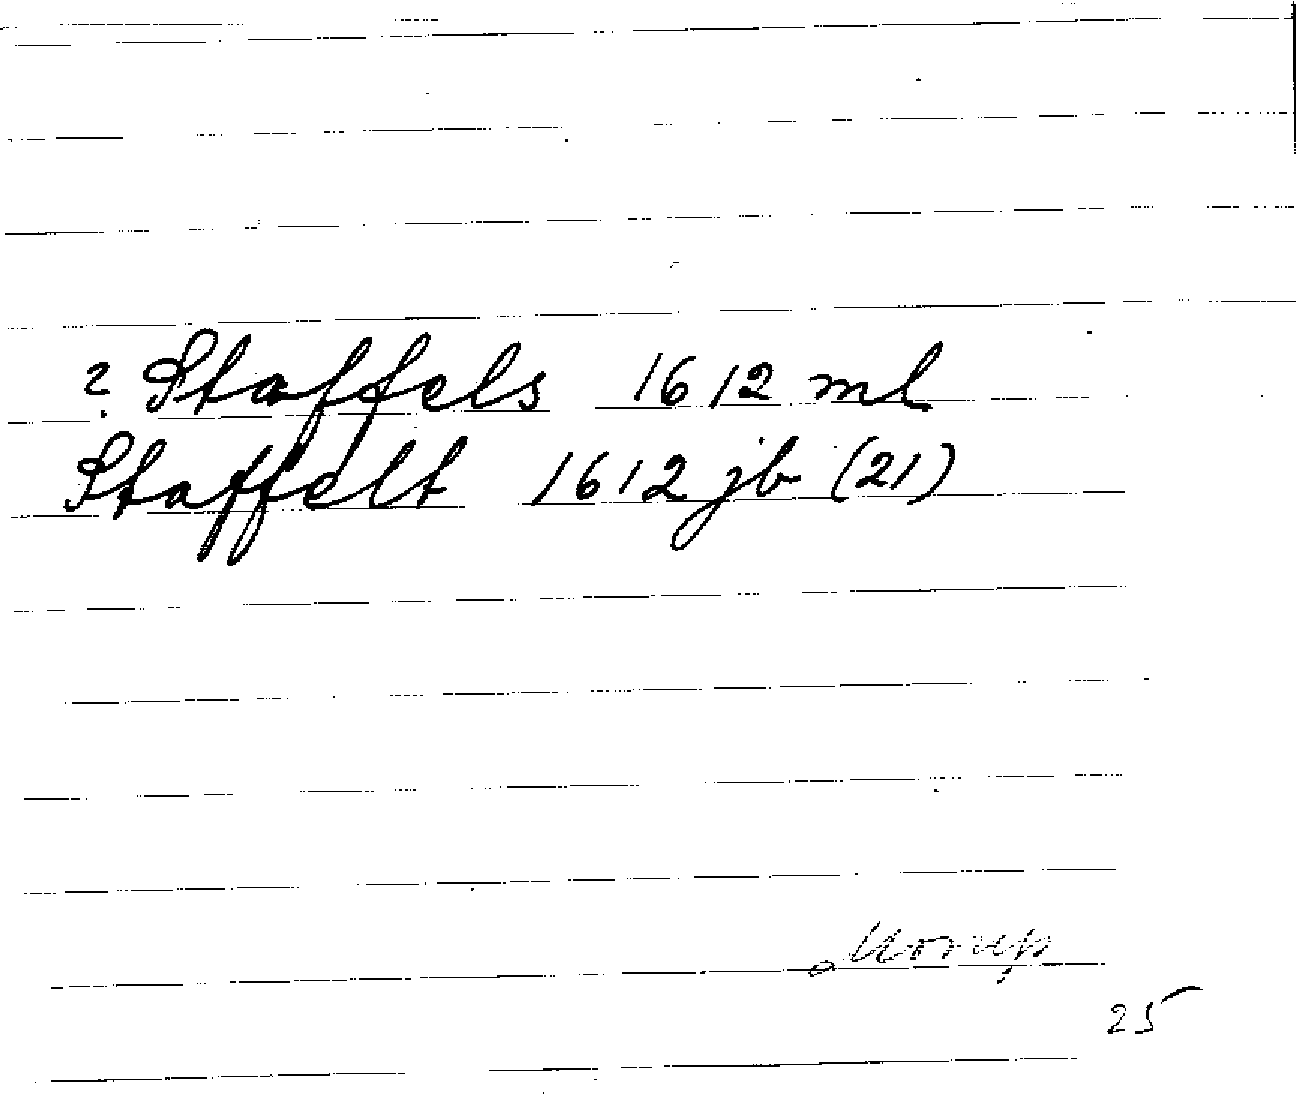 ? Staffels 1612 ml
Staffelt 1612 jb (21)
Morup
25